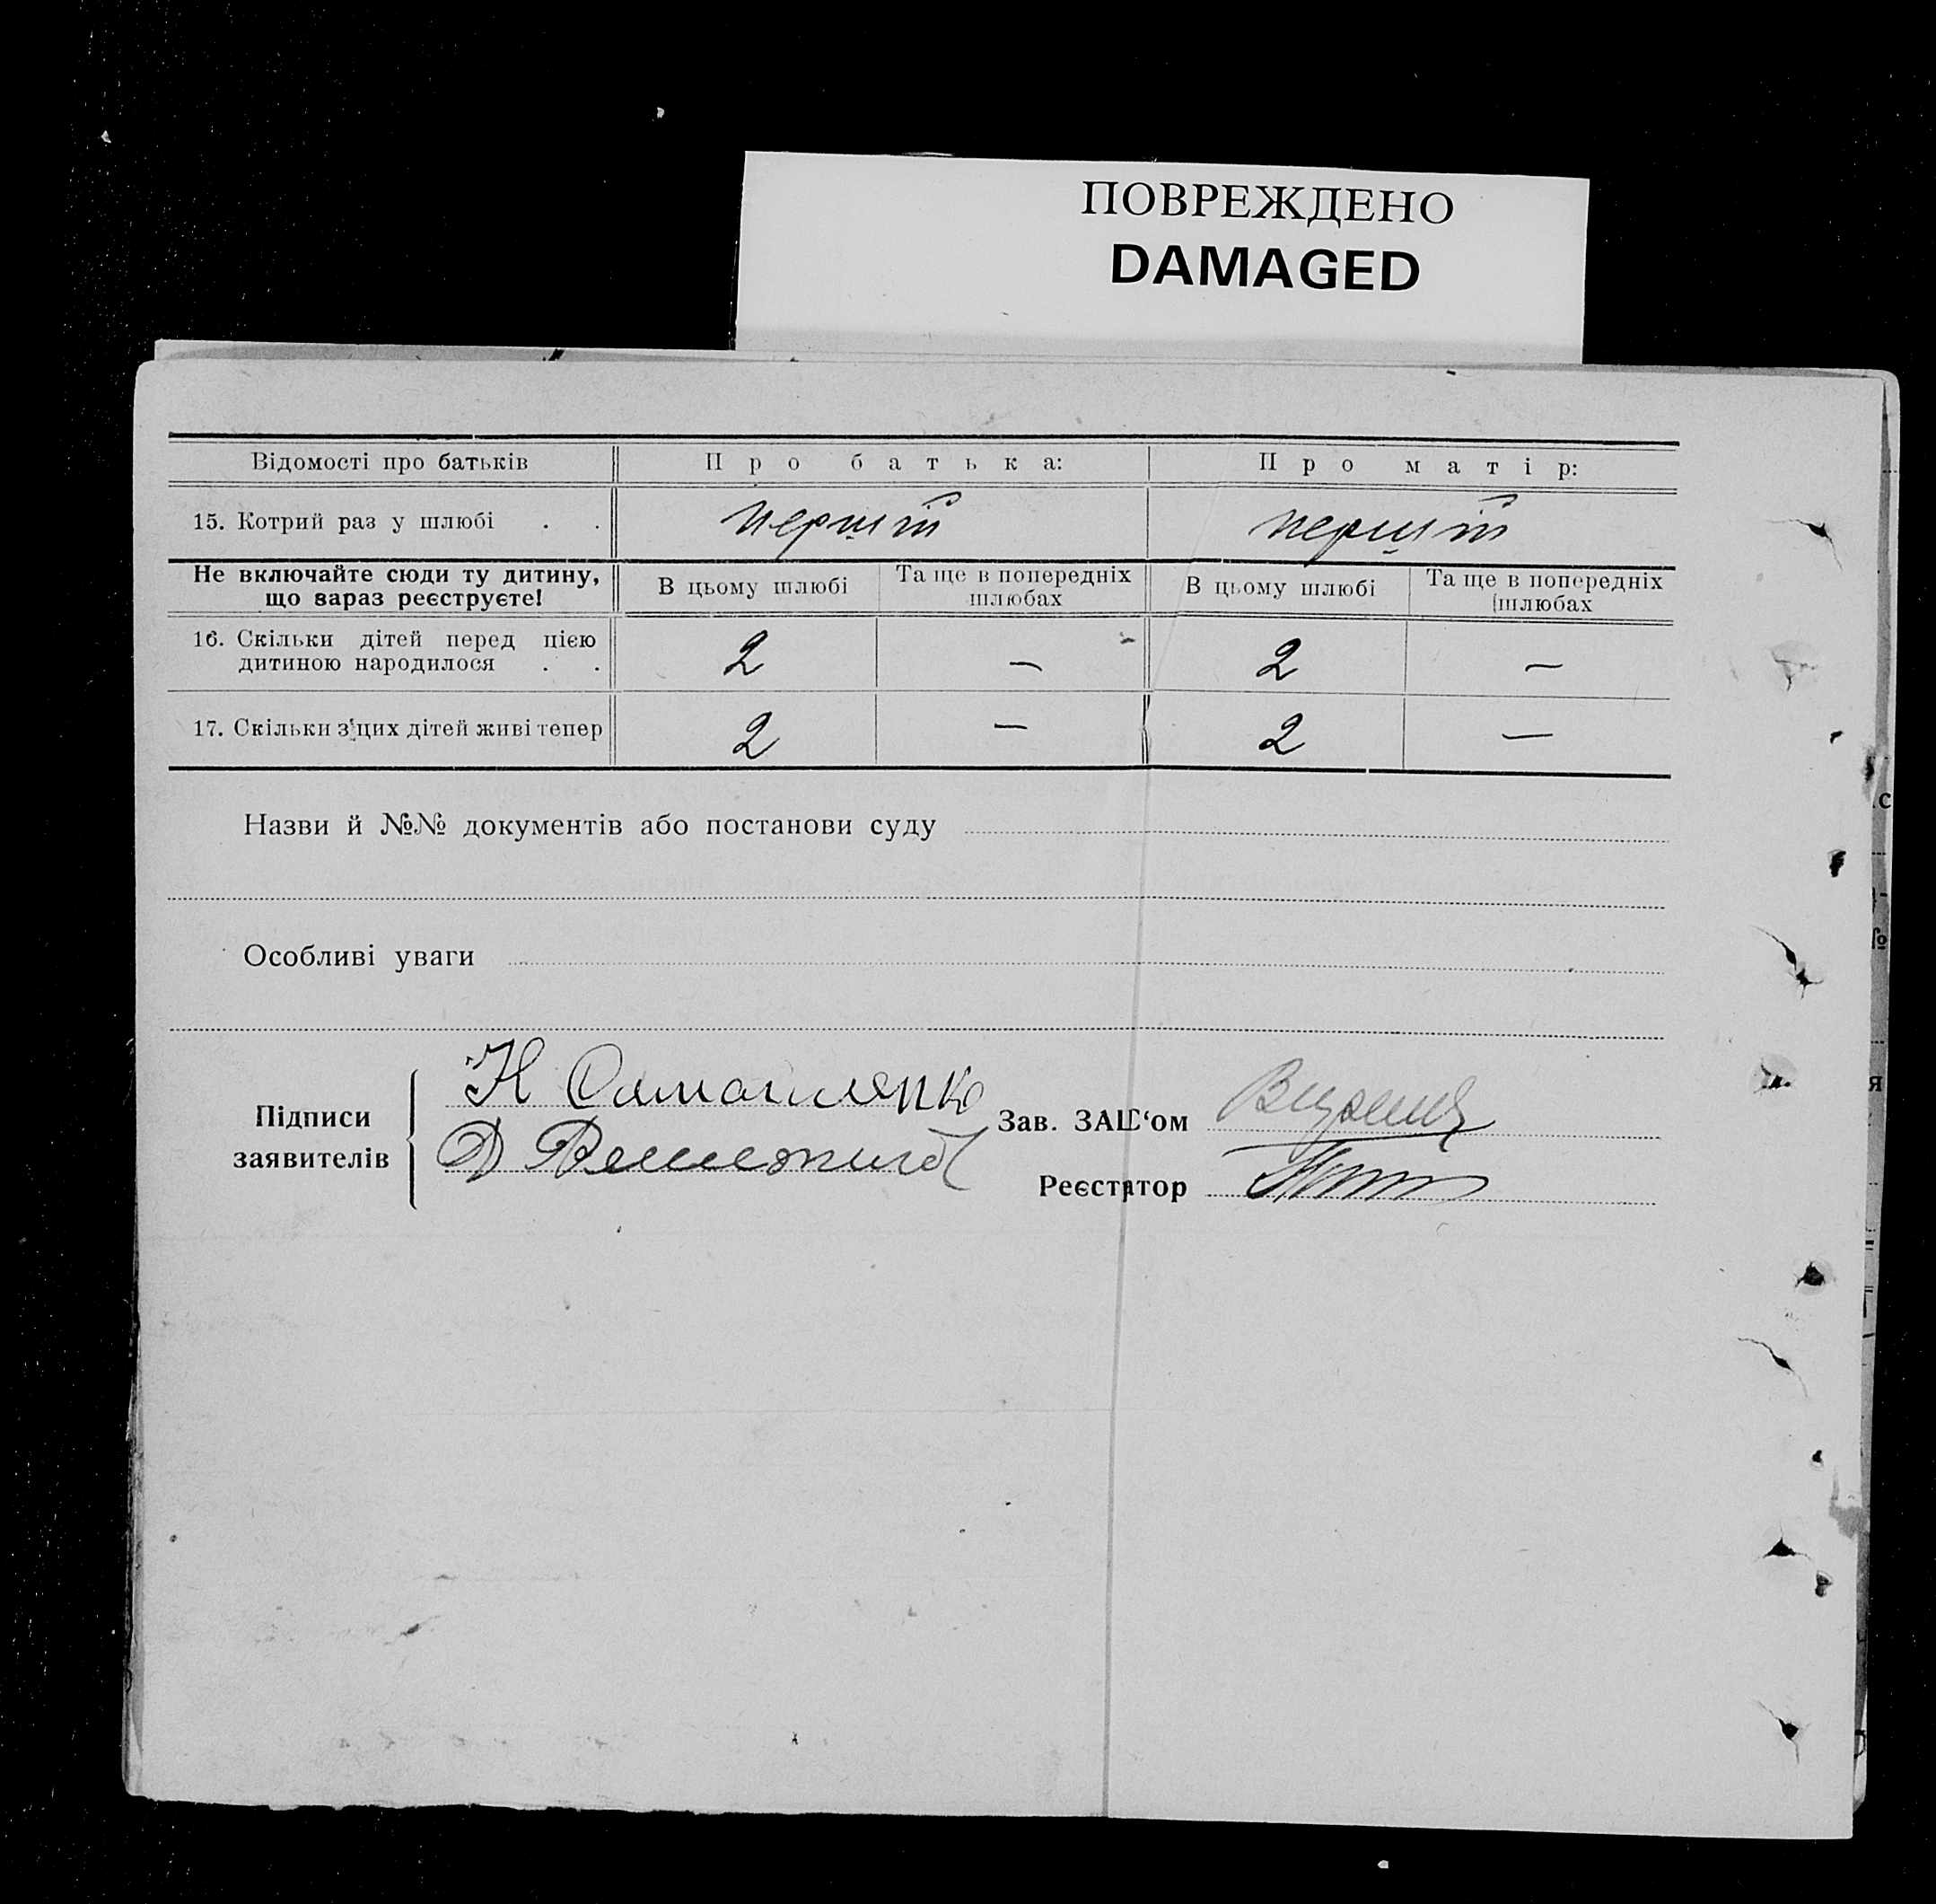 ПОВРЕЖДЕНО
DAMAGED
Відомості про батьків Про батька: Про матір:
15. Котрий раз у шлюбі . . перший перший
Не включайте сюди ту дитину, що зараз реєструєте! В цьому шлюбі Та ще в попередніх шлюбах В цьому шлюбі Та ще в попередніх шлюбах
16. Скільки дітей перед цією дитиною народилося . . 2 — 2 —
17. Скільки з цих дітей живі тепер 2 — 2 —
Назви й №№ документів або постанови суду
Особливі уваги
Підписи заявителів
Зав. ЗАГС‘ом
Реєстратор